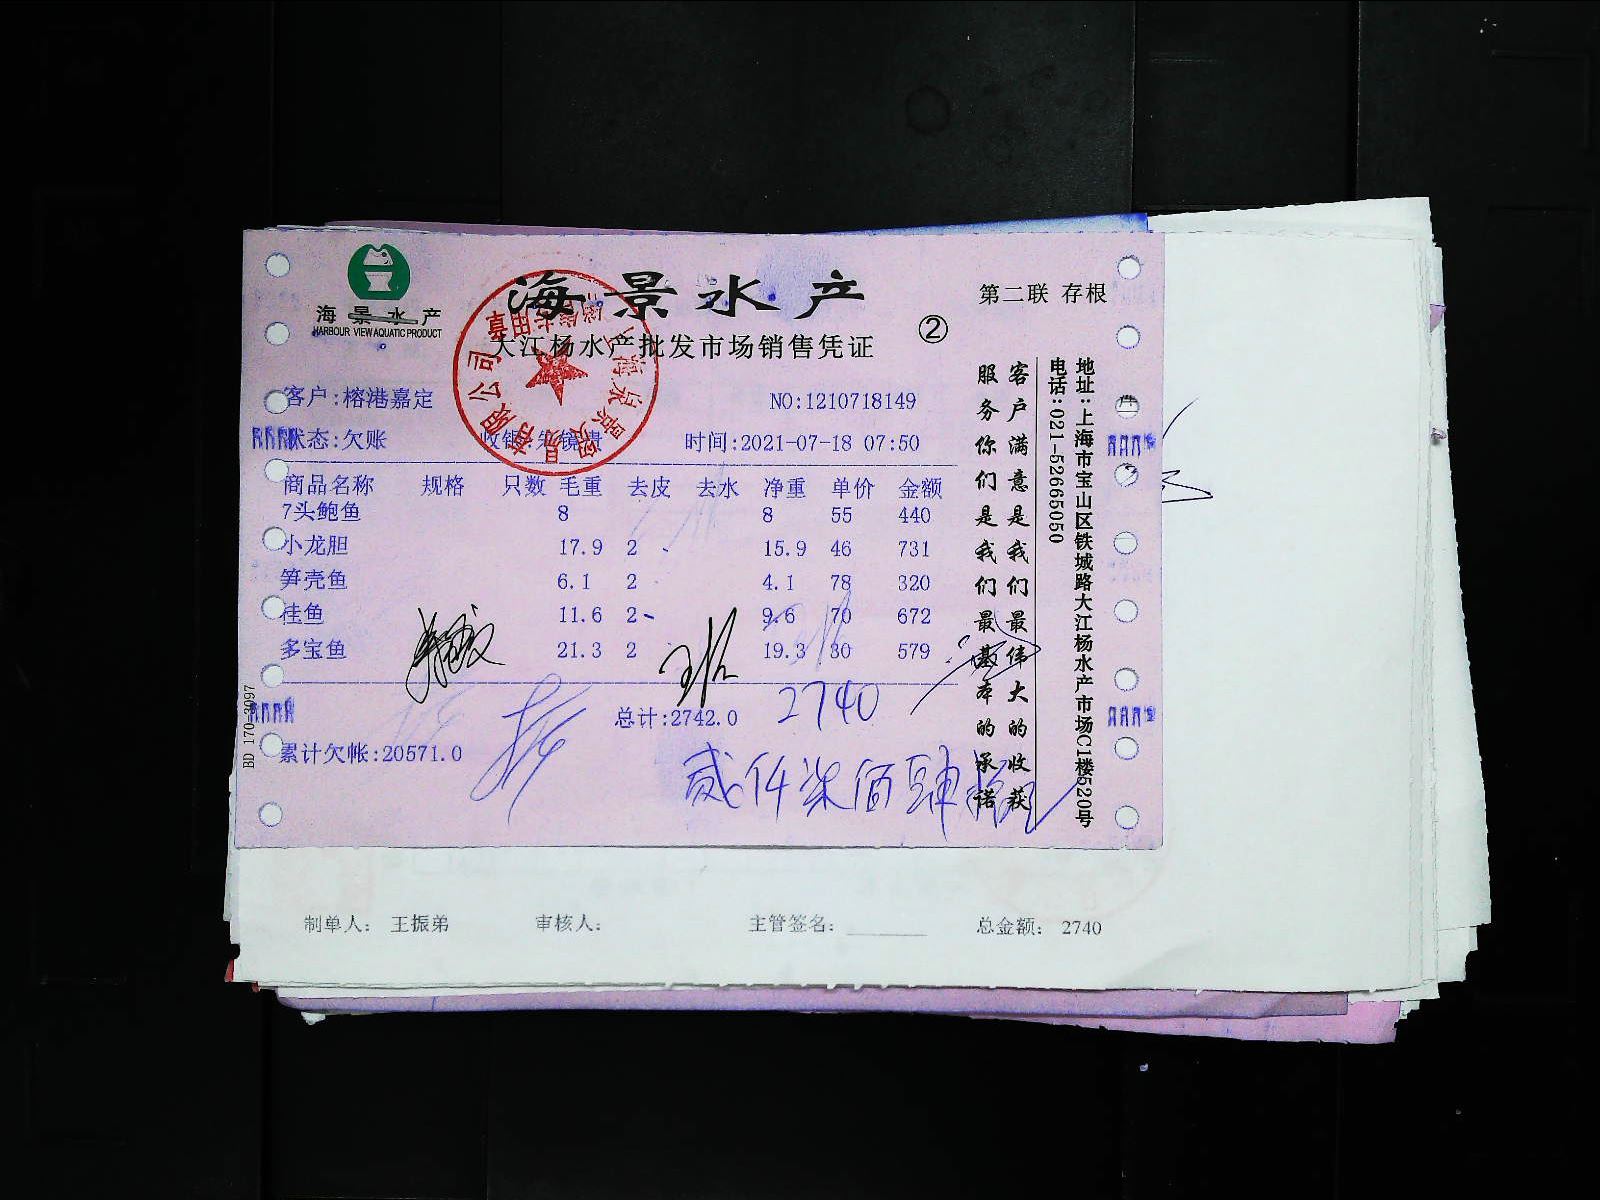 海景水产
HARBOUR VIEW AQUATIC PRODUCT
海景水产
大江杨水产批发市场销售凭证
②
第二联 存根
客户:榕港嘉定
NO:1210718149
状态:欠账
收银:朱镜贵
时间:2021-07-18 07:50
商品名称 规格 只数 毛重 去皮 去水 净重 单价 金额
7头鲍鱼 8 8 55 440
小龙胆 17.9 2 15.9 46 731
笋壳鱼 6.1 2 4.1 78 320
桂鱼 11.6 2 9.6 70 672
多宝鱼 21.3 2 19.3 30 579
总计:2742.0
2740
累计欠帐:20571.0
贰仟柒佰肆拾元
客户满意是我们最伟大的收获
服务你们是我们最基本的承诺
地址:上海市宝山区铁城路大江杨水产市场C1楼520号
电话:021-52665050
BD 170-3097
制单人: 王振弟 审核人: 主管签名: 总金额: 2740